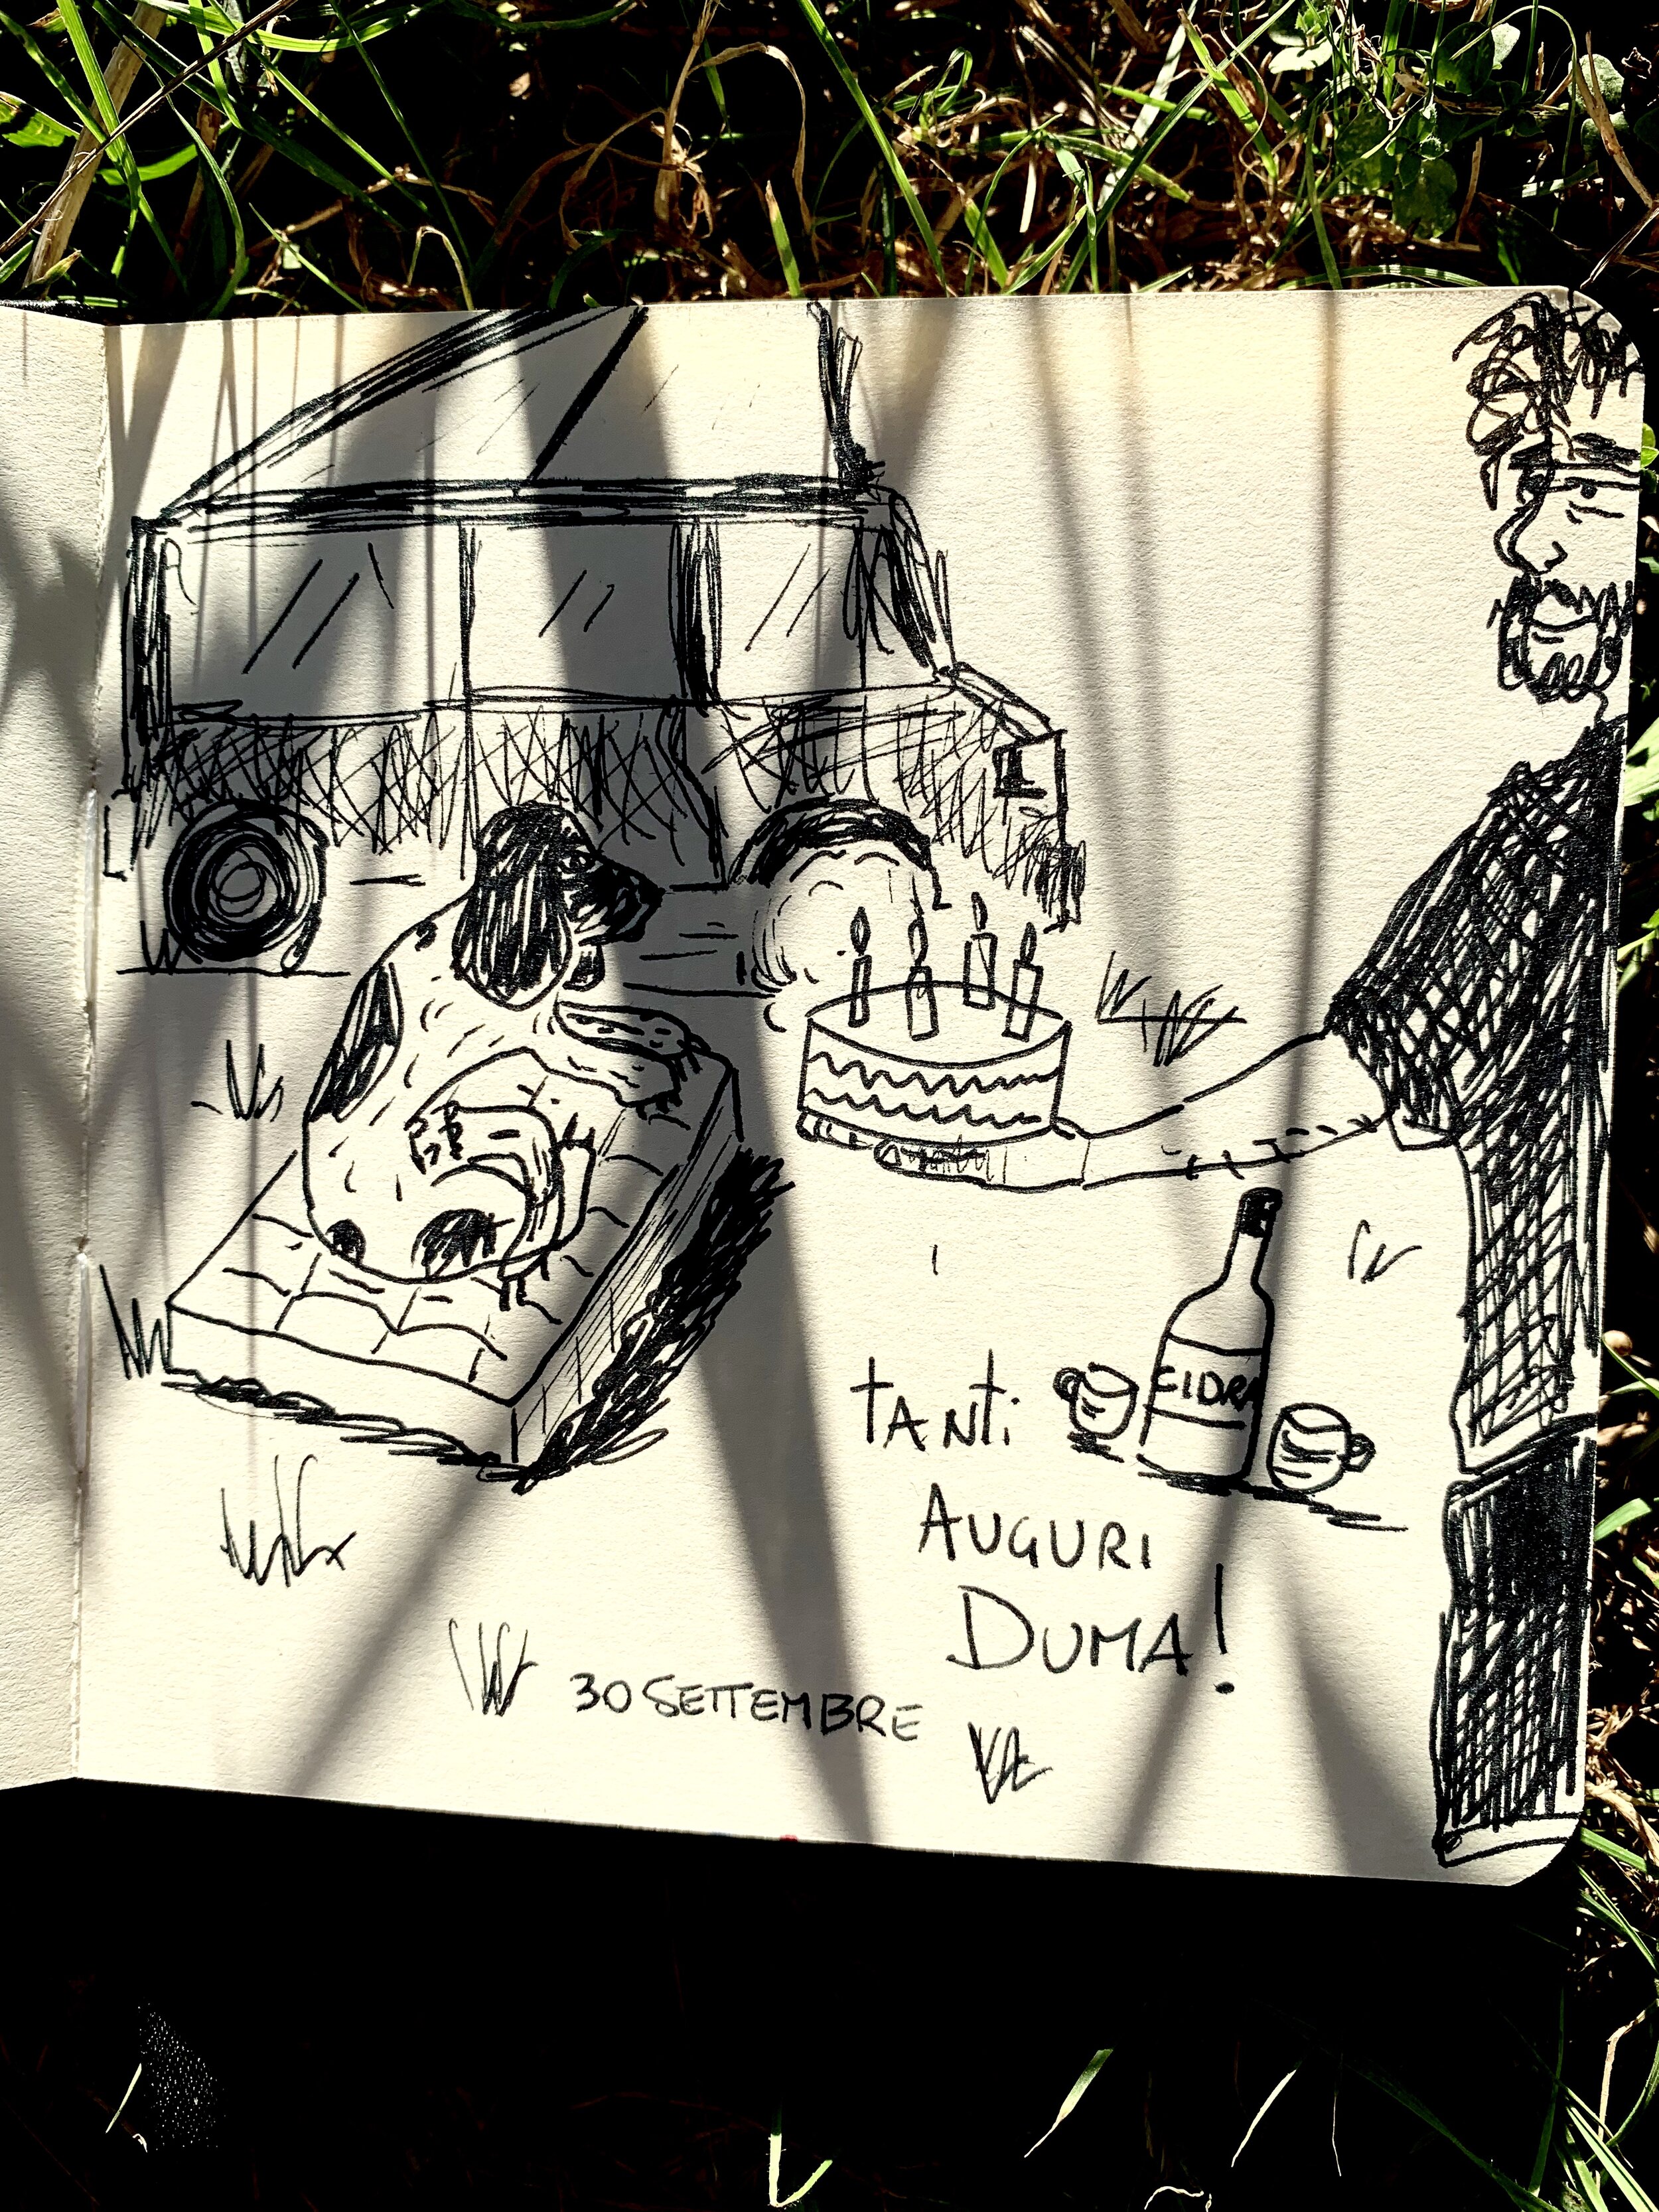 CIDRA
TANTi
AUGURI
DUMA!
30 SETTEMBRE